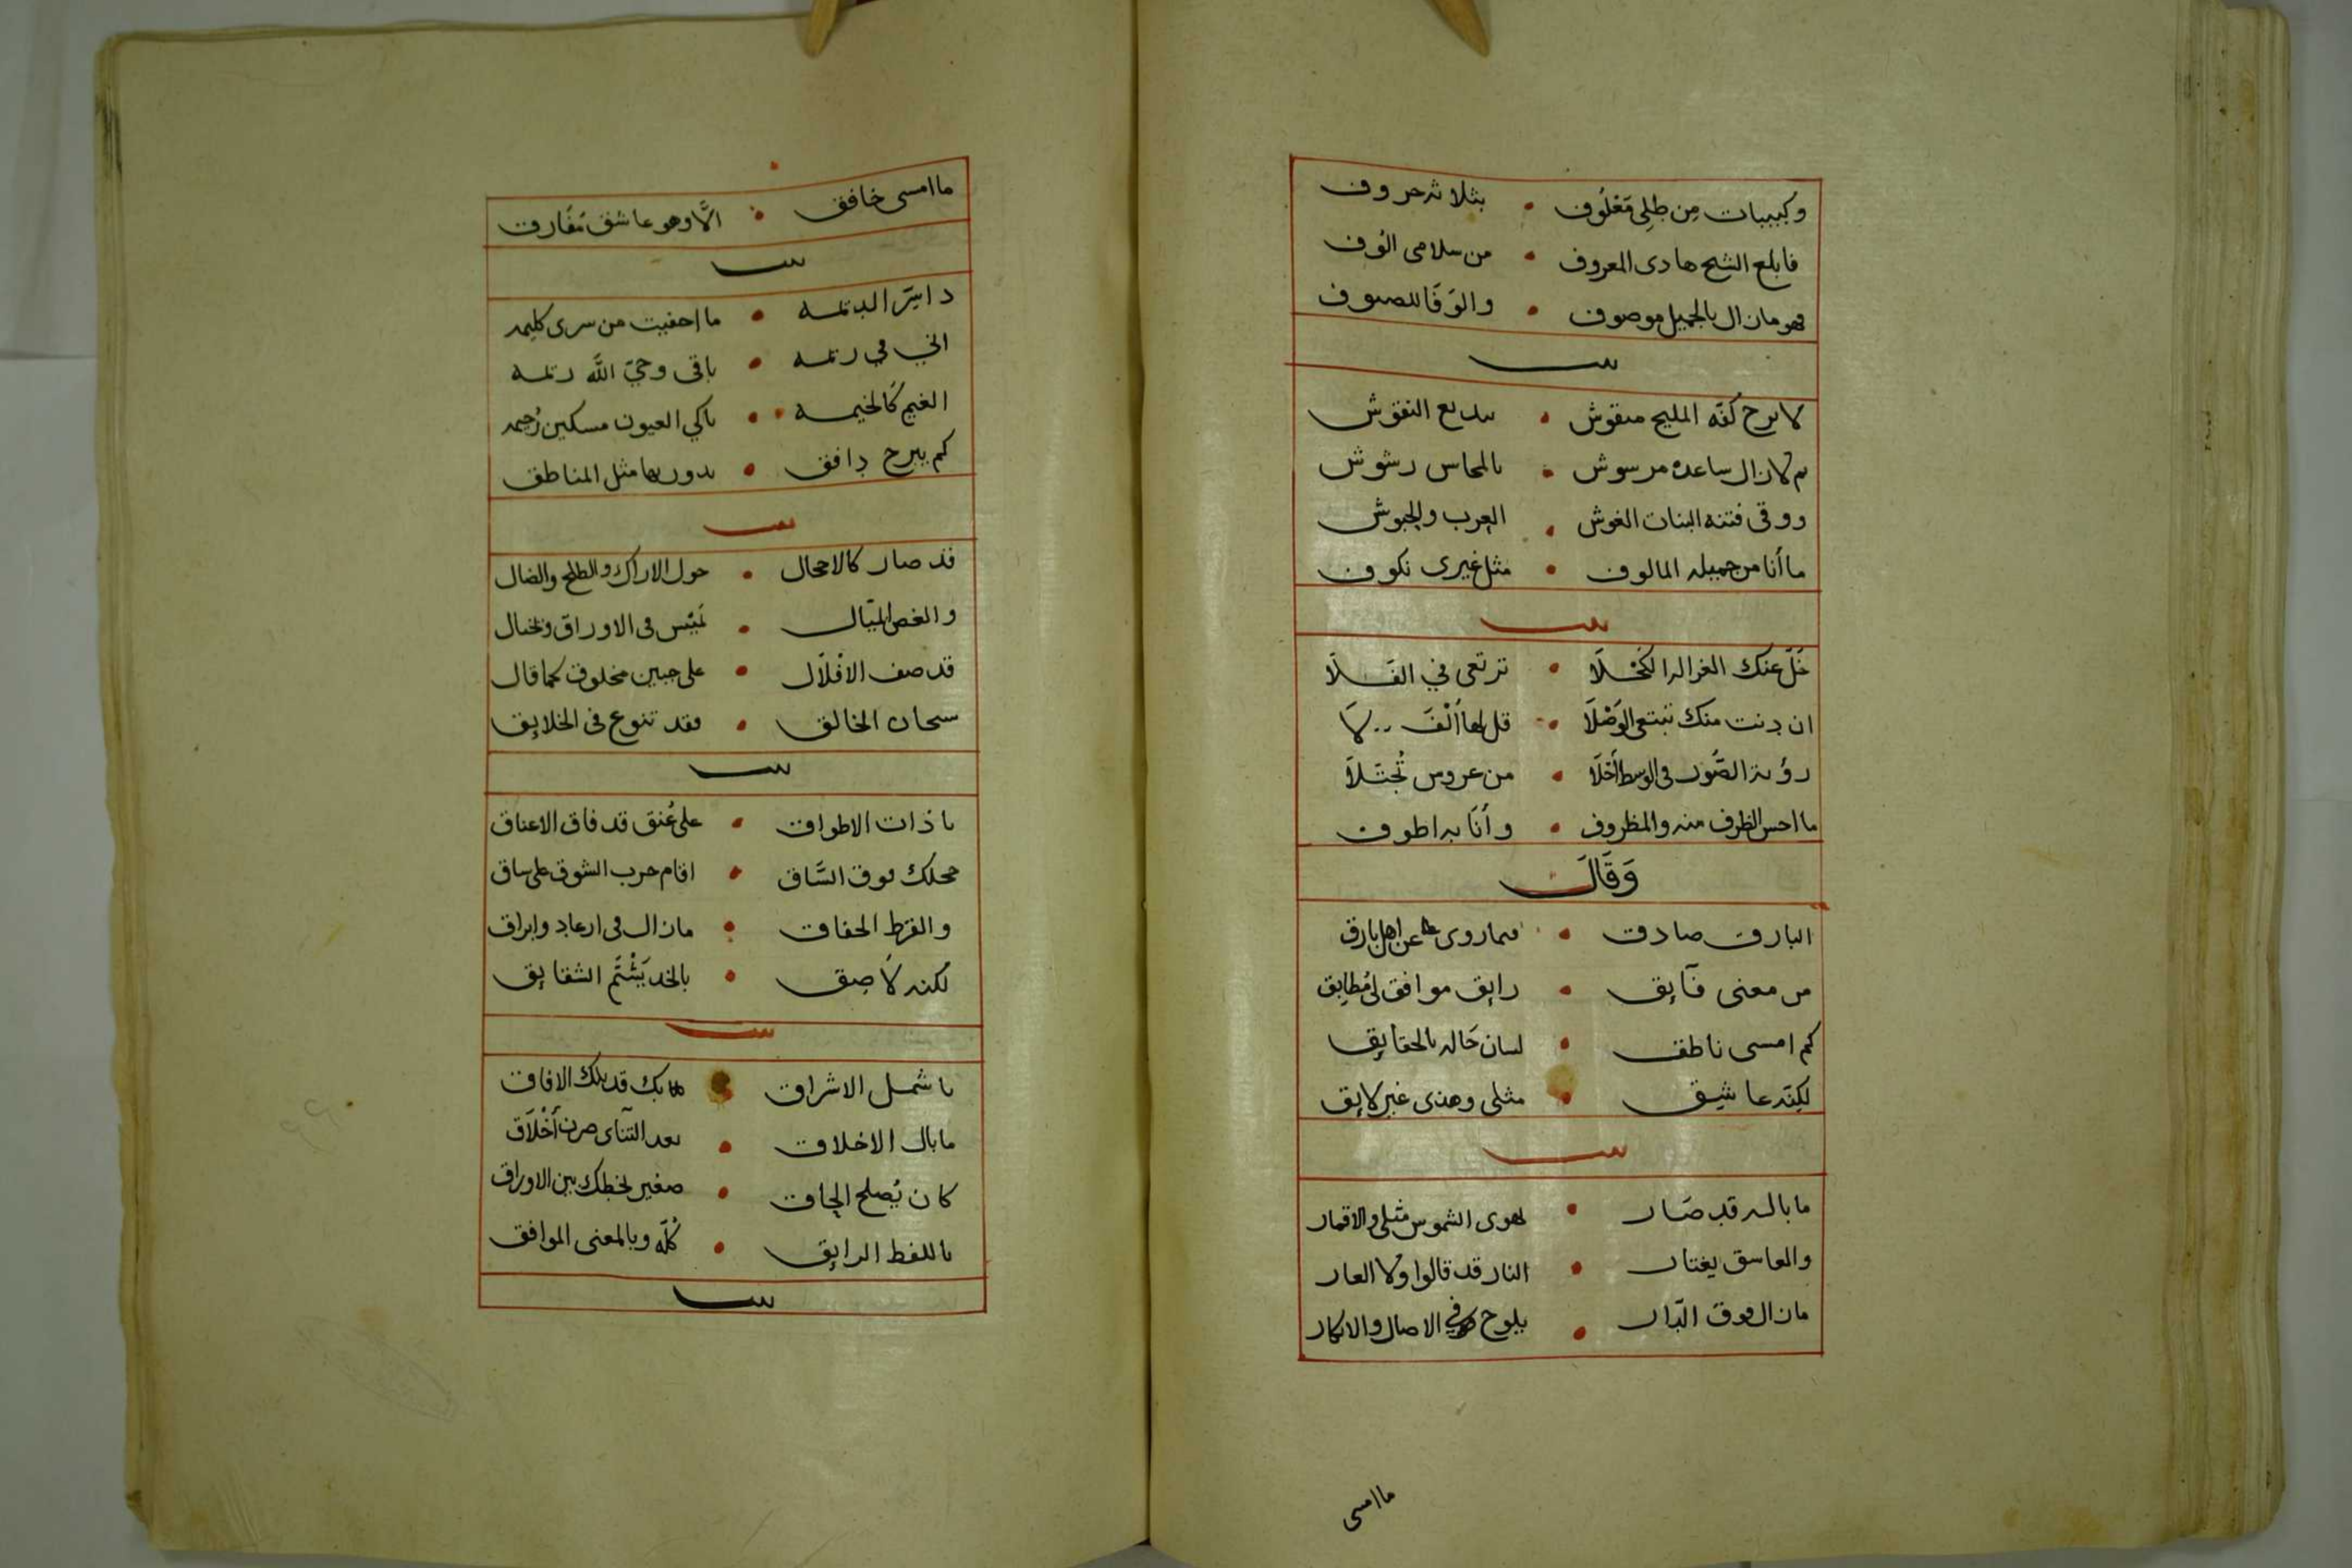 وكبيبات من طلى مغلوف • بثلاثه حروف
فابلع الشيح هادى المعروف • من سلامى الوف
فهو مازال بالجميل موصوف • والوفا للصوف
بيت
لا برح كفه المليح منقوش • بديع النقوش
ثم لازال ساعده مرسوش • بالمحاسن رشوش
ووقى فتنه البنات الغوش • العرب والحبوش
ما أنا من جميله المالوف • مثل غيرى نكوف
بيت
خل عنك الغزاله الكحلا • ترتعى في الفلا
ان دنت منك تبتغى الوصلا • قل لها ألف لا
رؤية الصون فى الوسط أحلا • من عروس تجتلا
ما احسن الظرف منه والمظروف • وأنا به اطوف
وقال
البارق صادق • فيما روى عن اهل بارق
من معنى فايق • رايق موافق لى مطابق
كم امسى ناطق • لسان حاله بالحقايق
لكنه عاشق • مثلى وهذى غير لايق
بيت
ما باله قد صار • يهوى الشموس مثلى والاقمار
والعاشق يختار • النار قد قالوا ولا العار
مازال فوق الدار • يلوح في الاصال والابكار
ما امسى
ما امسى خافق • الا وهو عاشق مفارق
بيت
دايم الديمه • ما احفيت من سرى كليمه
انى في ريمه • باقى وحى الله ريمه
الغيم كالخيمه • باكي العيون مسكين رحيمه
كم يبرح دافق • يدور بها مثل المناطق
بيت
قد صار كالاحجال • حول الاراك والطلح والضال
والغصن الميال • يميس فى الاوراق ويختال
قد صف الافلال • على جبين مخلوق كما قال
سبحان الخالق • فقد تنوع فى الخلايق
بيت
يا ذات الاطواق • على عنق قد فاق الاعناق
حجلك فوق الساق • اقام حرب الشوق على ساق
والقرط الخفاق • مازال فى ارعاد وابراق
لكنه لاصق • بالخد يشتم الشقايق
بيت
يا شمس الاشراق • كتابك قد بلك الافاق
ما بال الاخلاق • بعد التنآى صرن أخلاق
كان يصلح الحاق • صغير بخطك بين الاوراق
باللفظ الرايق • كله وبالمعنى الموافق
بيت